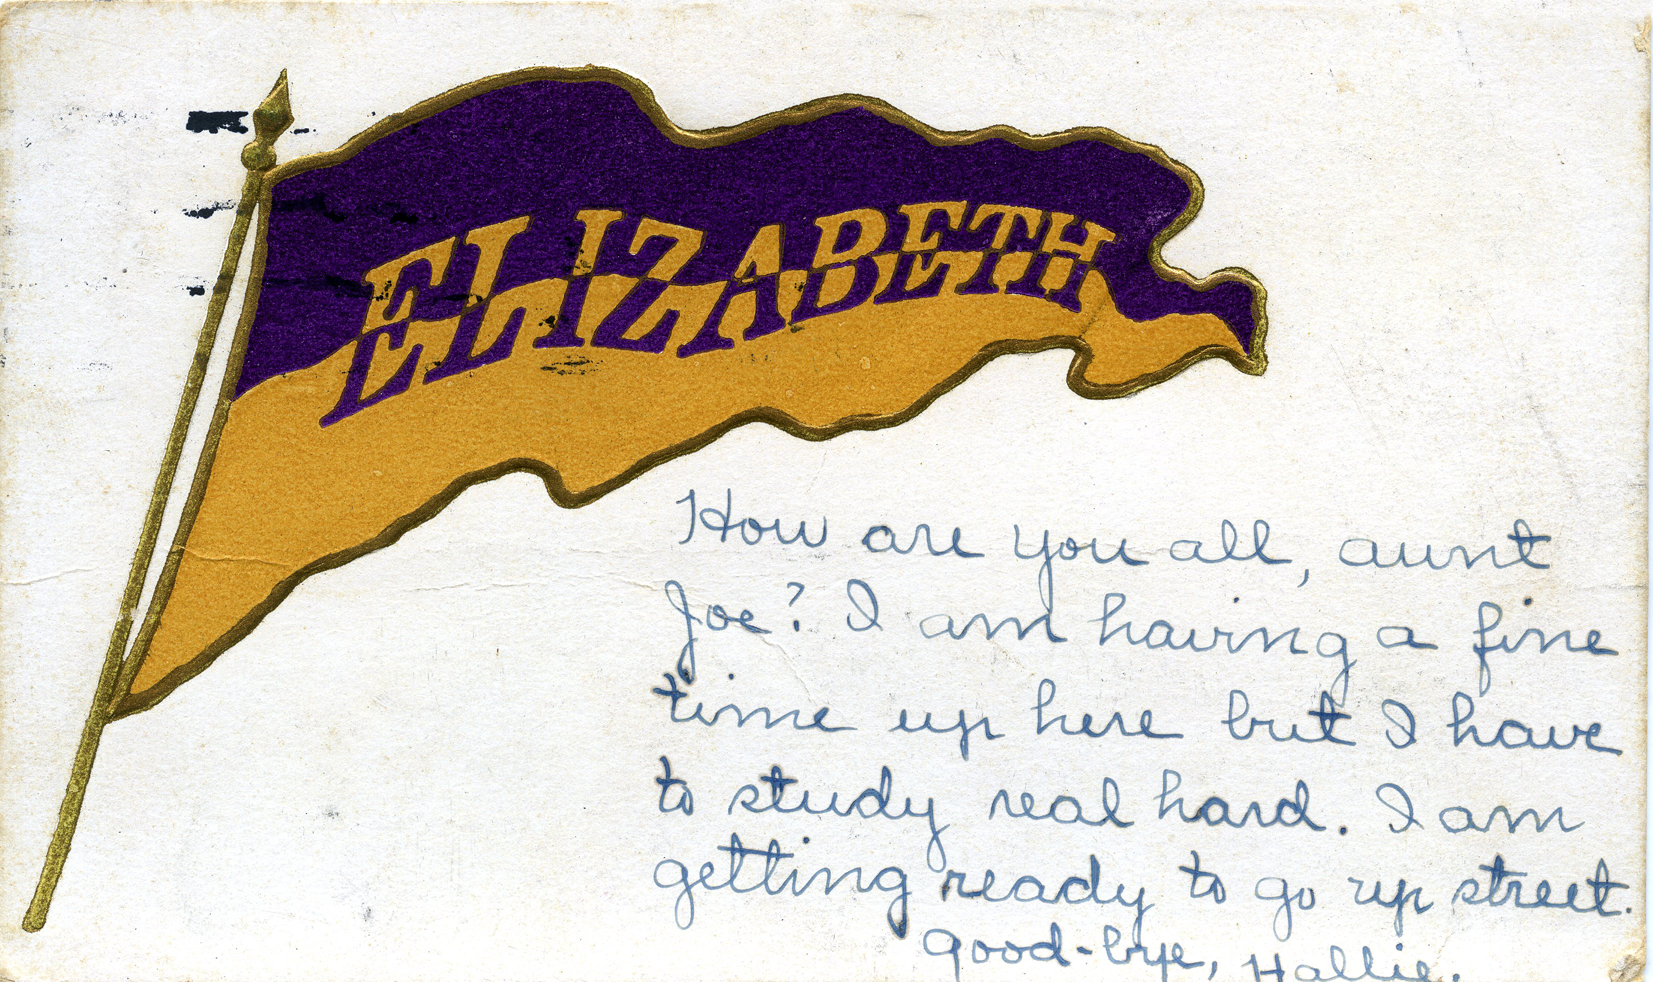 ELIZABETH
How are you all, aunt
Joe? I am having a fine
time up here but I have
to study real hard. I am
getting ready to go up street.
Good-bye, Hallie.